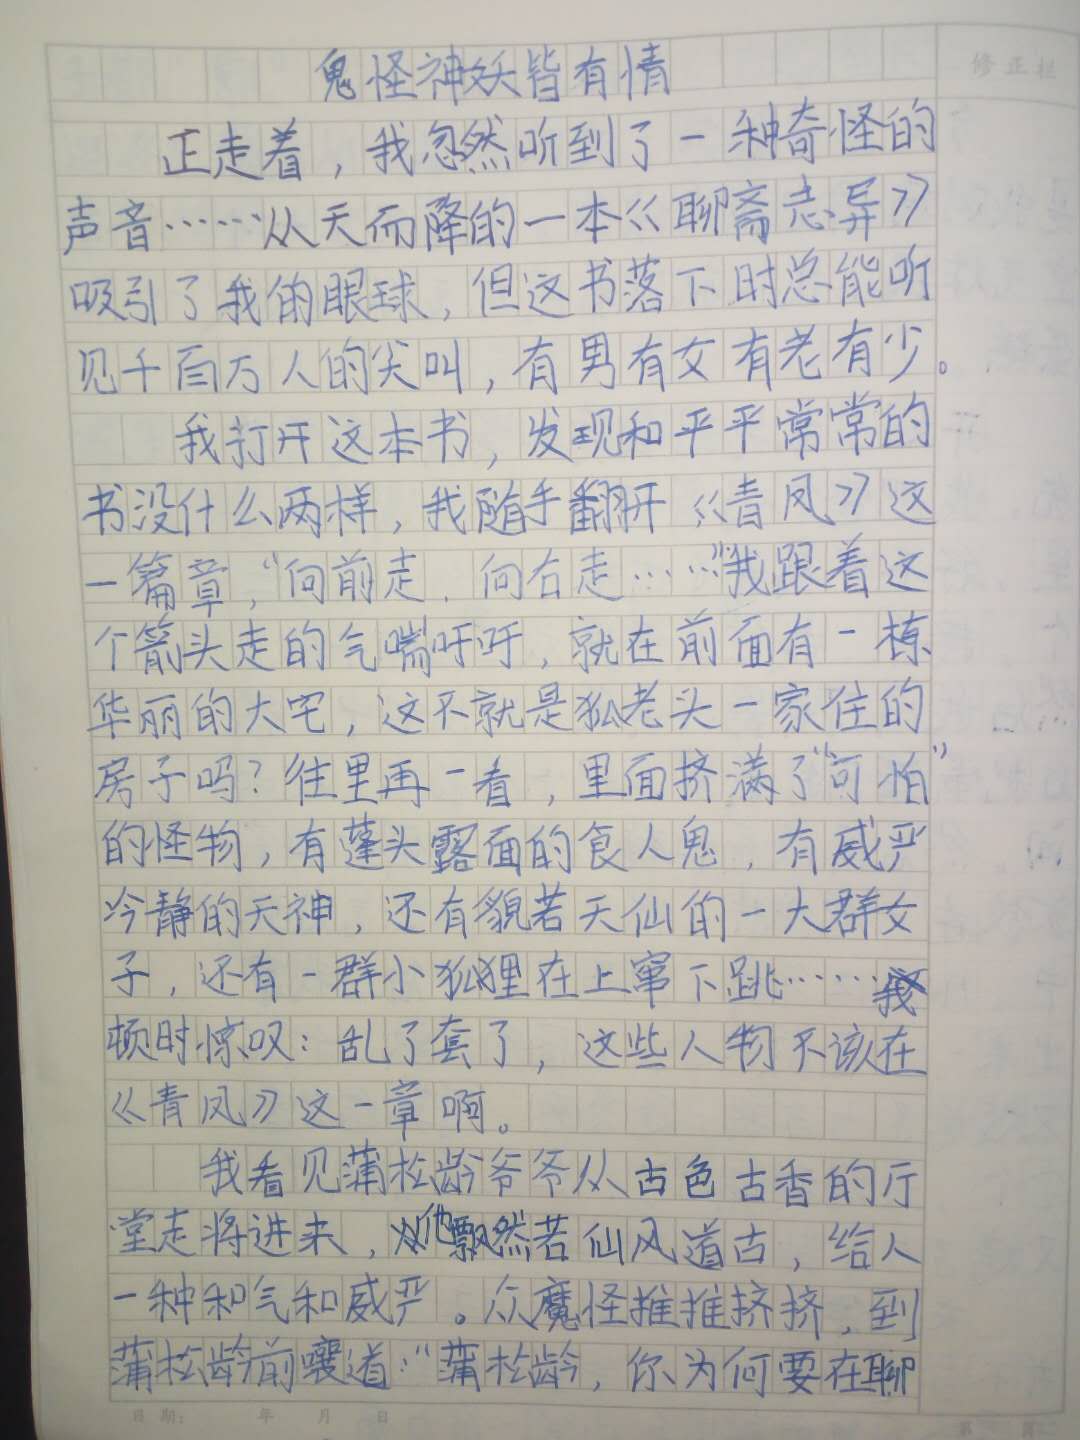 修正栏
鬼怪神妖皆有情
正走着，我忽然听到了一种奇怪的
声音……从天而降的一本《聊斋志异》
吸引了我的眼球，但这书落下时总能听
见千百万人的尖叫，有男有女有老有少。
我打开这本书，发现和平平常常的
书没什么两样，我随手翻开《青凤》这
一篇章，“向前走．向右走……”我跟着这
个箭头走的气喘吁吁，就在前面有一栋
华丽的大宅，这不就是狐老头一家住的
房子吗？往里再一看，里面挤满了“可怕”
的怪物，有蓬头露面的食人鬼，有威严
冷静的天神，还有貌若天仙的一大群女
子，还有一群小狐狸在上窜下跳……我
顿时惊叹：乱了套了，这些人物不该在
《青凤》这一章啊。
我看见蒲松龄爷爷从古色古香的厅
堂走将进来，他飘然若仙风道古，给人
一种和气和威严。众魔怪推推挤挤，到
蒲松龄前嚷道：“蒲松龄，你为何要在聊
日期： 年 月 日